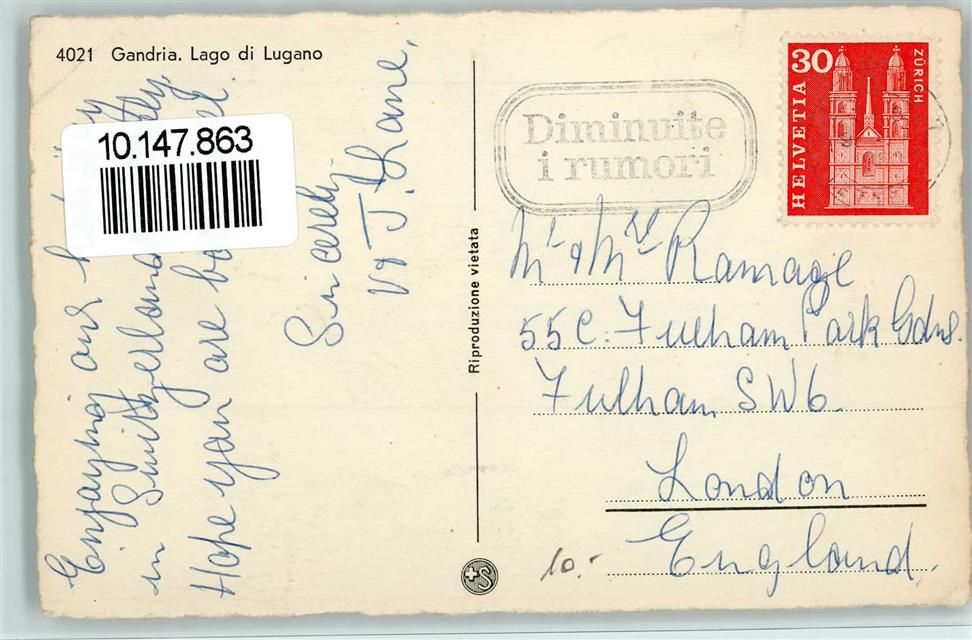 4021 Gandria. Lago di Lugano
10.147.863
Enjoying our
in Switzerland
Hope you are
Sincerely
V & J. Lane,
Riproduzione vietata
Diminuite
i rumori
30
HELVETIA
ZÜRICH
Mr & Mrs Ramage
55C. Fulham Park Gdns.
Fulham SW6.
London
England.
10.-
S